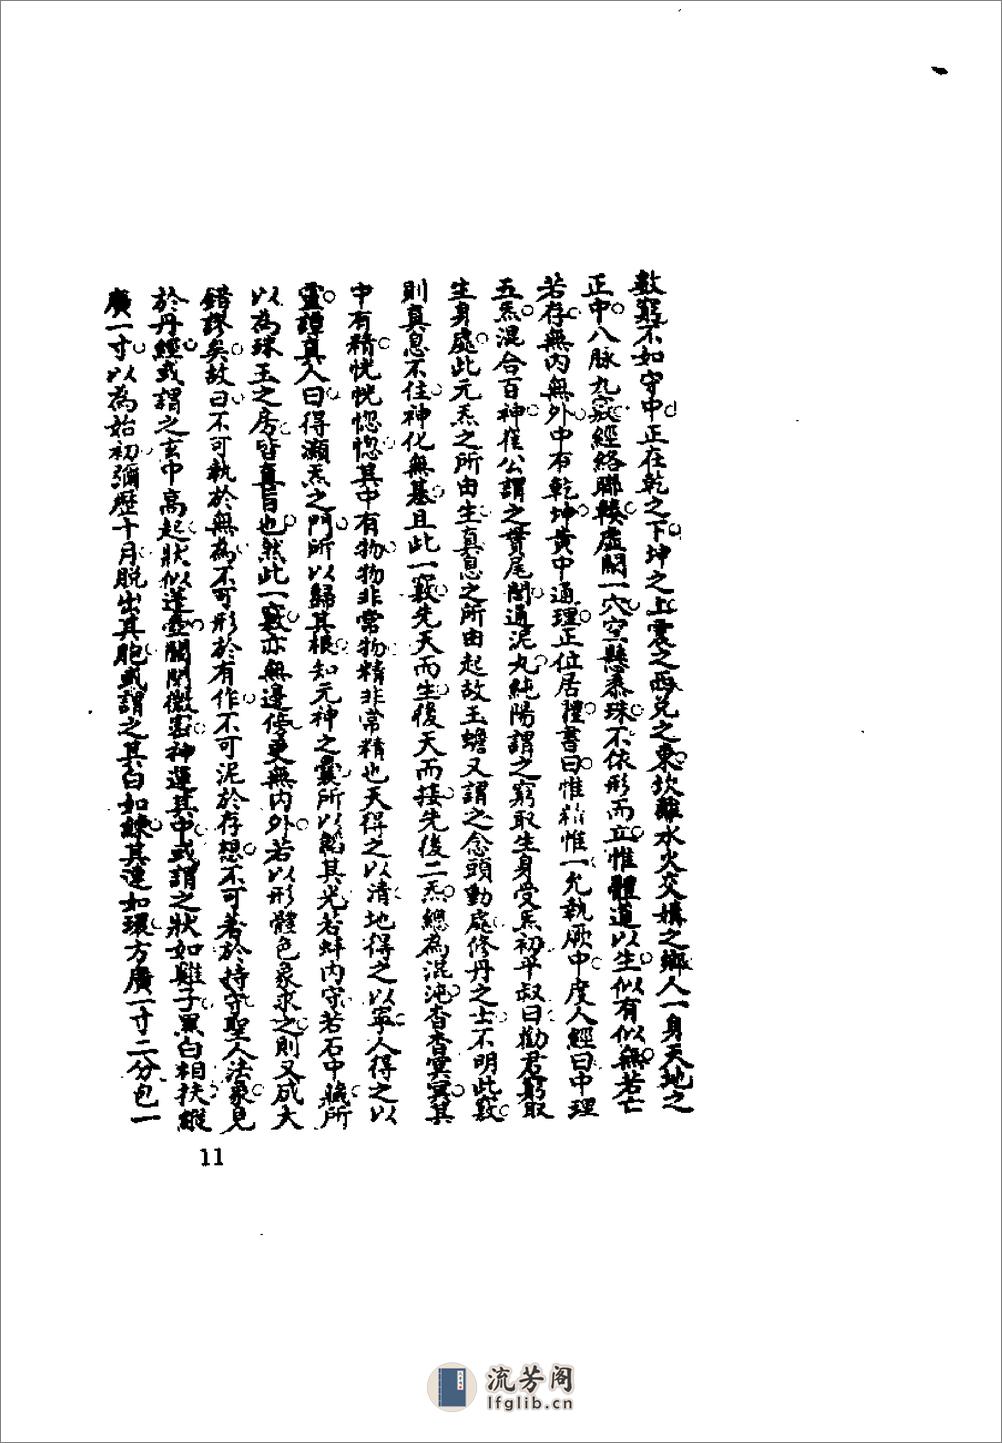 數窮不如守中正在乾之下坤之上震之西兌之東坎離水火交媾之鄉人一身天地之
正中八脉九竅經絡聯輳虛閑一穴空懸黍珠不依形而立惟體道以生似有似無若亡
若存無內無外中有乾坤黃中通理正位居體書曰惟精惟一允執厥中度人經曰中理
五炁混合百神崔公謂之貫尾閭通泥丸純陽謂之窮取生身受炁初平叔曰勸君窮取
生身處此元炁之所由生真息之所由起故玉蟾又謂之念頭動處修丹之士不明此竅
則真息不住神化無基且此一竅先天而生後天而接先後二炁總為混沌杳杳冥冥其
中有精恍恍惚惚其中有物物非常物精非常精也天得之以清地得之以寧人得之以
靈譚真人曰得灝炁之門所以歸其根知元神之囊所以韜其光若蚌內守若石中藏所
以為珠玉之房皆真旨也然此一竅亦無邊傍更無內外若以形體色象求之則又成大
錯謬矣故曰不可執於無為不可形於有作不可泥於存想不可着於持守聖人法象見
於丹經或謂之玄中高起狀似蓬壺關閉微密神運其中或謂之狀如雞子黑白相扶縱
廣一寸以為始初彌歷十月脫出其胞或謂之其白如練其連如環方廣一寸二分包一
11
流芳阁
lfglib.cn